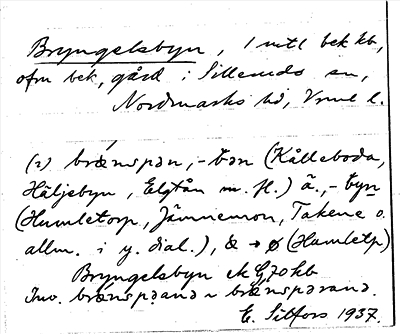 Bryngelsbyn, 1 mtl bek kb,
ofm bek, gård i Silleruds sn,
Nordmarks hd, Vrml l.
(2) brænspən, -bən (Kålleboda,
Häljebyn, Elgtån m. fl.) ä., -byn
(Humletorp, Jämnemon, Takene o.
allm. i y. dial.), æ → ø (Humletp)
Bryngelsbyn ek G70 kb
Inv. brænspəna ~ brænspərana.
E. Sitfors 1937.